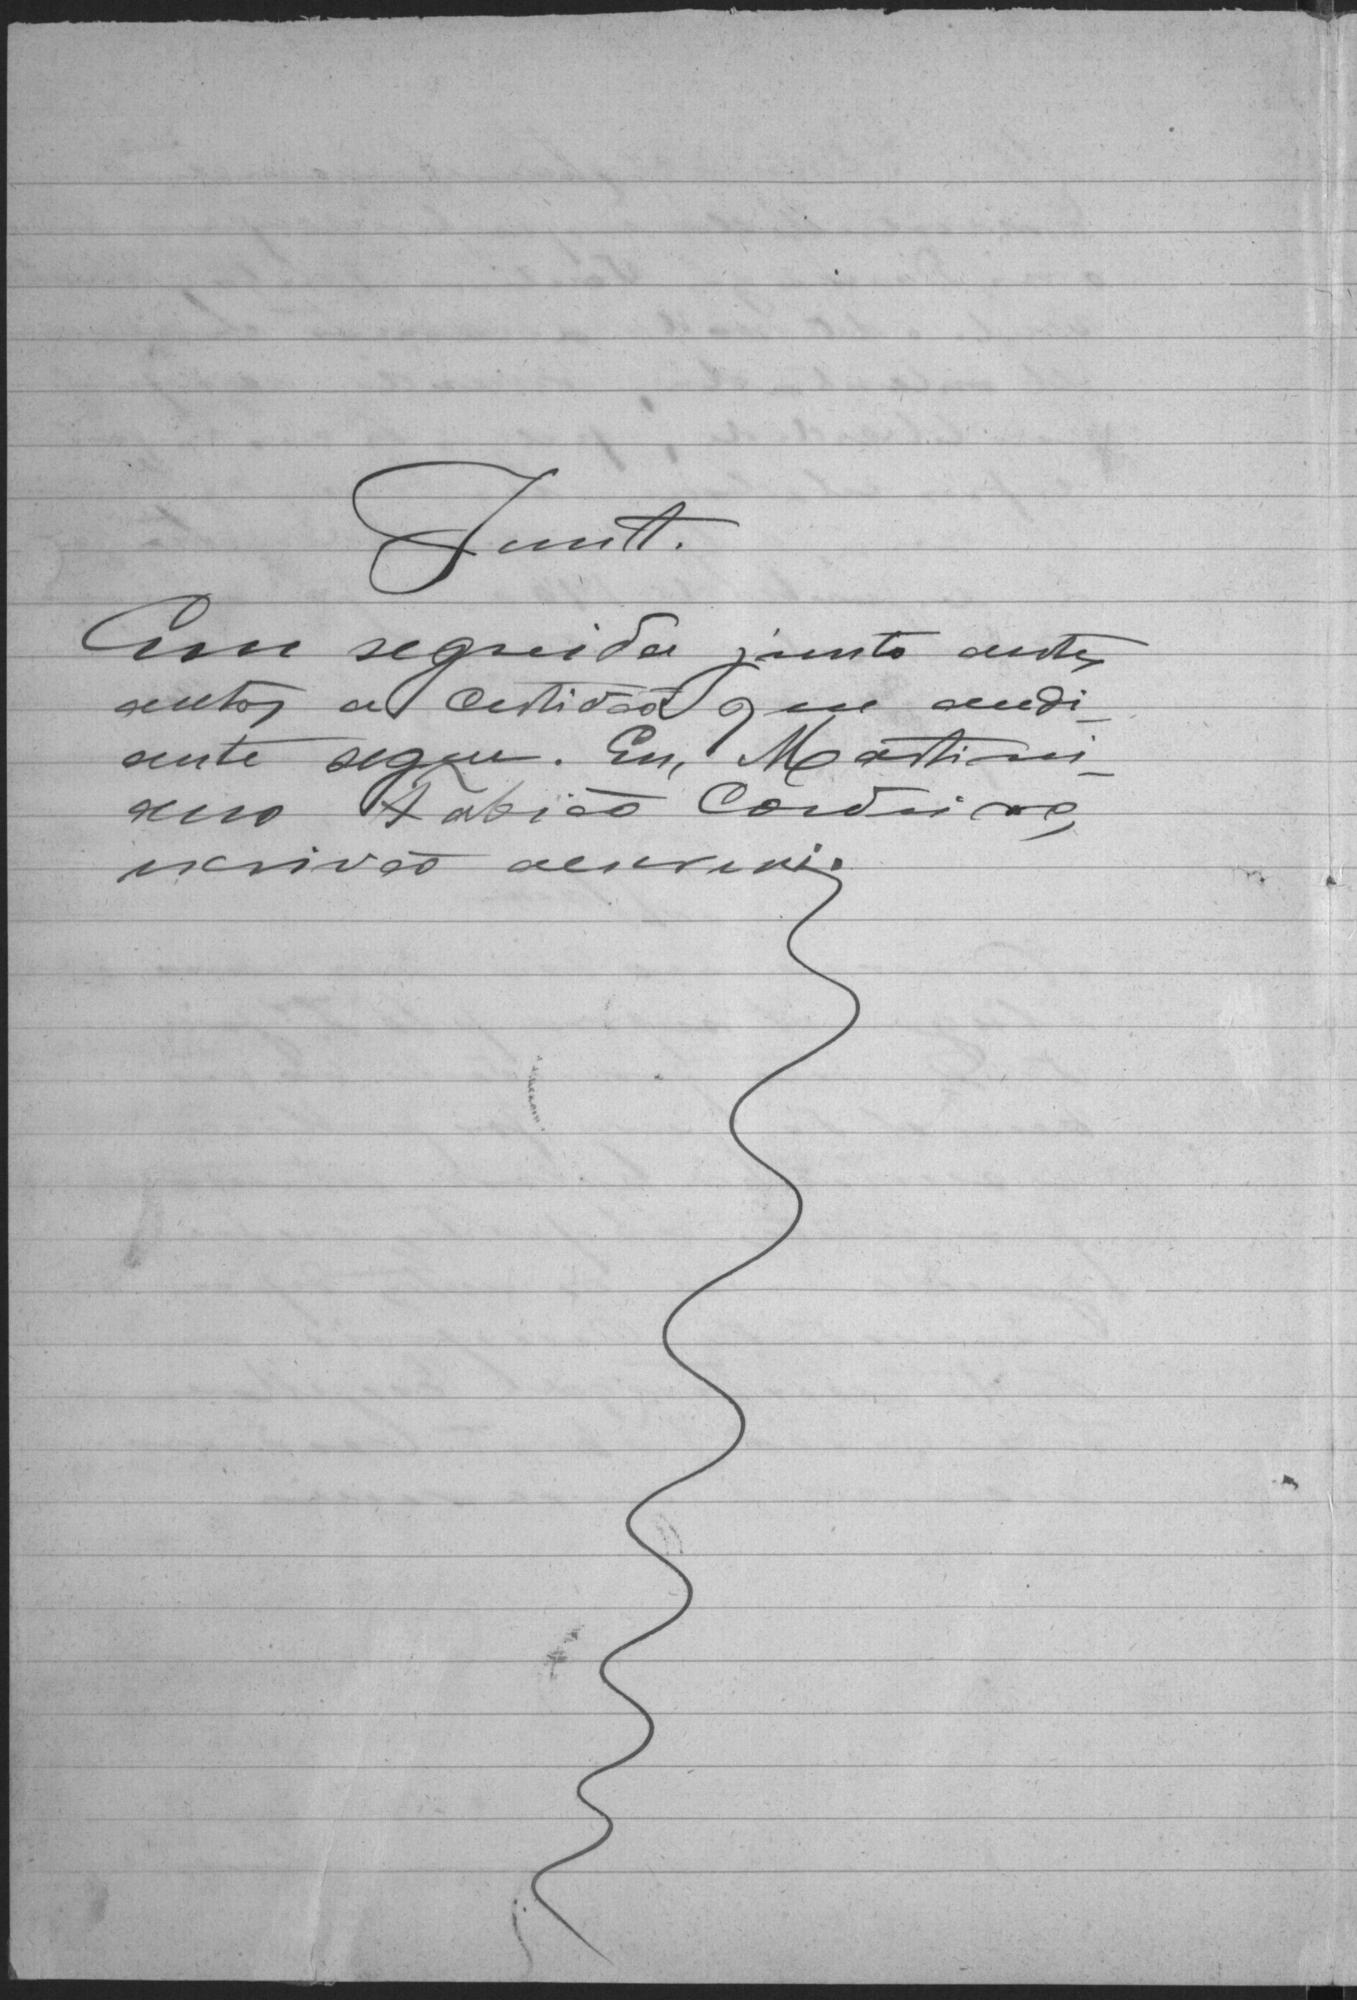 Junt.
Em seguida junto aestes
autos a certidão que adi-
ante segue. Eu, Martini-
ano Fabião Cordeiro,
escrivão escrevi.